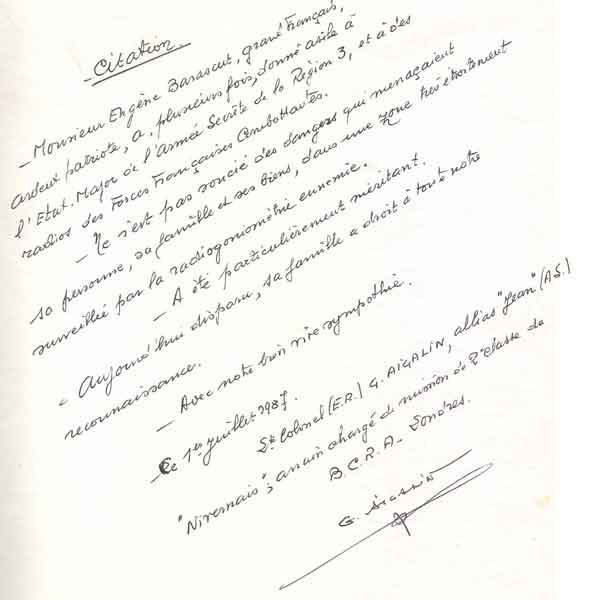 - Citation -
- Monsieur Eugène Barascut, grand Français,
ardeux patriote, a, plusieurs fois, donné asile à
l'Etat-Major de l'Armée Secrète de la Région 3, et à des
radios des Forces Françaises Combattantes.
- Ne s'est pas soucié des dangers qui menaçaient
sa personne, sa famille et ses biens, dans une zone très étroitement
surveillée par la radiogoniométrie ennemie.
- A été particulièrement méritant.
Aujourd'hui disparu, sa famille a droit à toute notre
reconnaissance.
- Avec notre bien vive sympathie.
- Ce 1er Juillet 1987.
Lt Colonel (E.R.) G. AIGALIN, allias "Jean" (A.S.)
"Nivernais"; ancien chargé de mission de 2e classe du
B.C.R.A - Londres.
G. AIGALIN